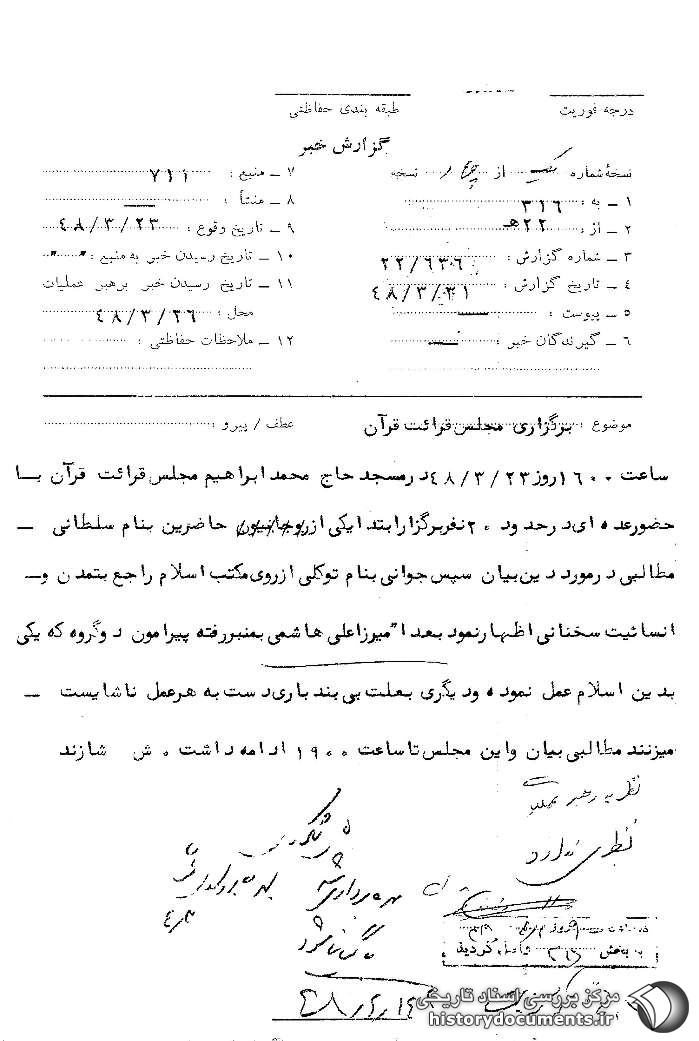 درجه فوریت
طبقه بندی حفاظتی
گزارش خبر
نسخهٔ شماره یک از نسخه
۱ ــ به : ۳۱۶
۲ ــ از : ۲۲هـ
۳ ــ شماره گزارش : ۲۲/۶۳۶
۴ ــ تاریخ گزارش : ۴۸/۳/۳۱
۵ ــ پیوست :
۶ ــ گیرندگان خبر :
۷ ــ منبع : ۷۱۱
۸ ــ منشأ :
۹ ــ تاریخ وقوع : ۴۸/۳/۲۳
۱۰ ــ تاریخ رسیدن خبر به منبع : " "
۱۱ ــ تاریخ رسیدن خبر برهبر عملیات
محل : ۴۸/۳/۲۶
۱۲ ــ ملاحظات حفاظتی :
موضوع : برگزاری مجلس قرائت قرآن
عطف / پیرو :
ساعت ۱۶۰۰ روز ۴۸/۳/۲۳ در مسجد حاج محمد ابراهیم مجلس قرائت قرآن با
حضور عده ای در حدود ۲۰ نفر برگزار ابتدا یکی از روحانیون حاضرین بنام سلطانی ــ
مطالبی در مورد دین بیان سپس جوانی بنام توکلی از روی مکتب اسلام راجع بتمدن و ــ
انسانیت سخنانی اظهار نمود بعدا" میرزاعلی هاشمی بمنبر رفته پیرامون دو گروه که یکی
بدین اسلام عمل نموده و دیگری بعلت بی بند باری دست به هر عمل ناشایست ــ
میزنند مطالبی بیان و این مجلس تا ساعت ۱۹۰۰ ادامه داشت . ش شازند
نظریه رهبر عملیات
نظری ندارد
به بخش ۳۱۶ واصل گردید
۴۸/۴/۱۴
مرکز بررسی اسناد تاریخی
historydocuments.ir